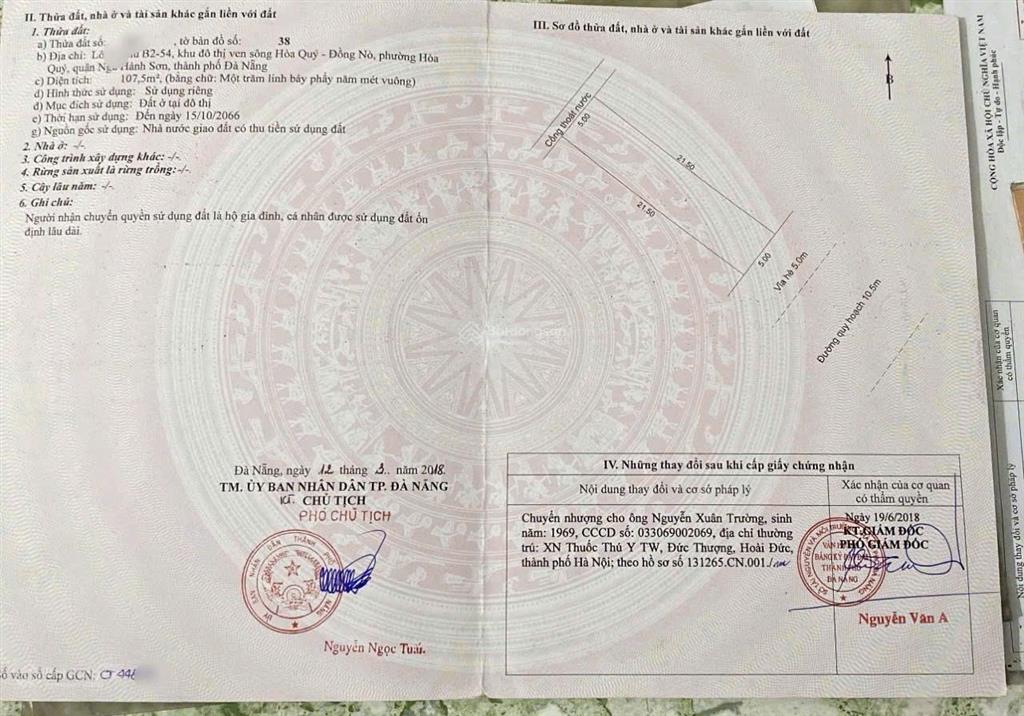 II. Thửa đất, nhà ở và tài sản khác gắn liền với đất
1. Thửa đất:
a) Thửa đất số: , tờ bản đồ số: 38
b) Địa chỉ: Lô B2-54, khu đô thị ven sông Hòa Quý - Đồng Nò, phường Hòa
Quý, quận Hành Sơn, thành phố Đà Nẵng
c) Diện tích: 107,5m², (bằng chữ: Một trăm linh bảy phẩy năm mét vuông)
d) Hình thức sử dụng: Sử dụng riêng
đ) Mục đích sử dụng: Đất ở tại đô thị
e) Thời hạn sử dụng: Đến ngày 15/10/2066
g) Nguồn gốc sử dụng: Nhà nước giao đất có thu tiền sử dụng đất
2. Nhà ở: -/-
3. Công trình xây dựng khác: -/-
4. Rừng sản xuất là rừng trồng:-/-
5. Cây lâu năm: -/-
6. Ghi chú:
Người nhận chuyển quyền sử dụng đất là hộ gia đình, cá nhân được sử dụng đất ổn
định lâu dài.
Đà Nẵng, ngày 12 tháng 3. năm 2018.
TM. ỦY BAN NHÂN DÂN TP. ĐÀ NẴNG
KT. CHỦ TỊCH
PHÓ CHỦ TỊCH
Nguyễn Ngọc Tuấn.
số vào sổ cấp GCN: CT 446
III. Sơ đồ thửa đất, nhà ở và tài sản khác gắn liền với đất
B
Cống thoát nước
5.00
21.50
21.50
5.00
Vỉa hè 5.0m
Đường quy hoạch 10.5m
IV. Những thay đổi sau khi cấp giấy chứng nhận
Nội dung thay đổi và cơ sở pháp lý
Xác nhận của cơ quan
có thẩm quyền
Chuyển nhượng cho ông Nguyễn Xuân Trường, sinh
năm: 1969, CCCD số: 033069002069, địa chỉ thường
trú: XN Thuốc Thú Y TW, Đức Thượng, Hoài Đức,
thành phố Hà Nội; theo hồ sơ số 131265.CN.001./
Ngày 19/6/2018
KT.GIÁM ĐỐC
PHÓ GIÁM ĐỐC
Nguyễn Văn A
CỘNG HÒA XÃ HỘI CHỦ NGHĨA VIỆT NAM
Độc lập - Tự do - Hạnh phúc
Xác nhận của cơ quan
có thẩm quyền
Nội dung thay đổi và cơ sở pháp lý